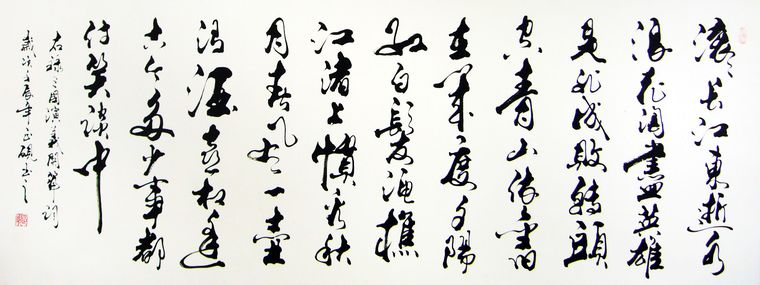 滚滚长江東逝水
浪花淘盡英雄
是非成敗轉頭
空青山依舊
在幾度夕陽
紅白髮漁樵
江渚上慣看秋
月春风一壺
濁酒喜相逢
古今多少事都
付笑談中
右録三國演義開篇詞
歲次壬辰年正硯书之